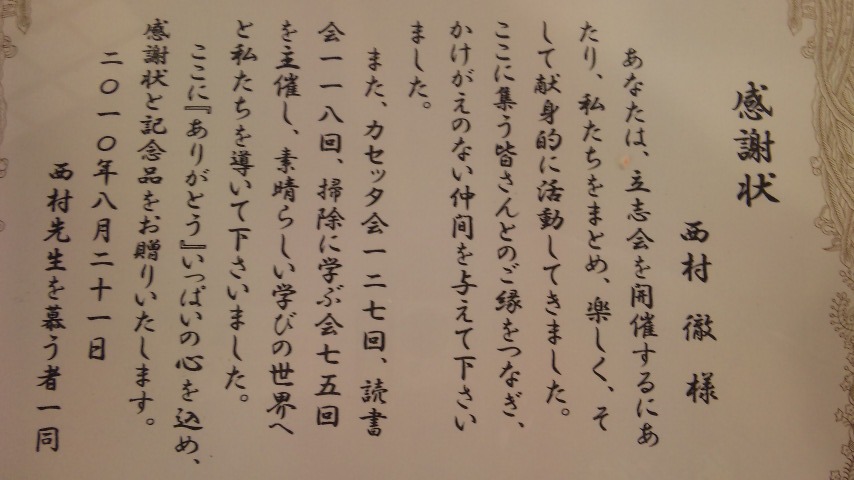 感謝状
西村 徹 様
あなたは、立志会を開催するにあ
たり、私たちをまとめ、楽しく、そ
して献身的に活動してきました。
ここに集う皆さんとのご縁をつなぎ、
かけがえのない仲间を与えて下さい
ました。
また、カセッタ会一二七回、読書
会一一八回、掃除に学ぶ会七五回
を主催し、素晴らしい学びの世界へ
と私たちを導いて下さいました。
ここに『ありがとう』いっぱいの心を込め、
感謝状と記念品をお贈りいたします。
二〇一〇年八月二十一日
西村先生を慕う者一同